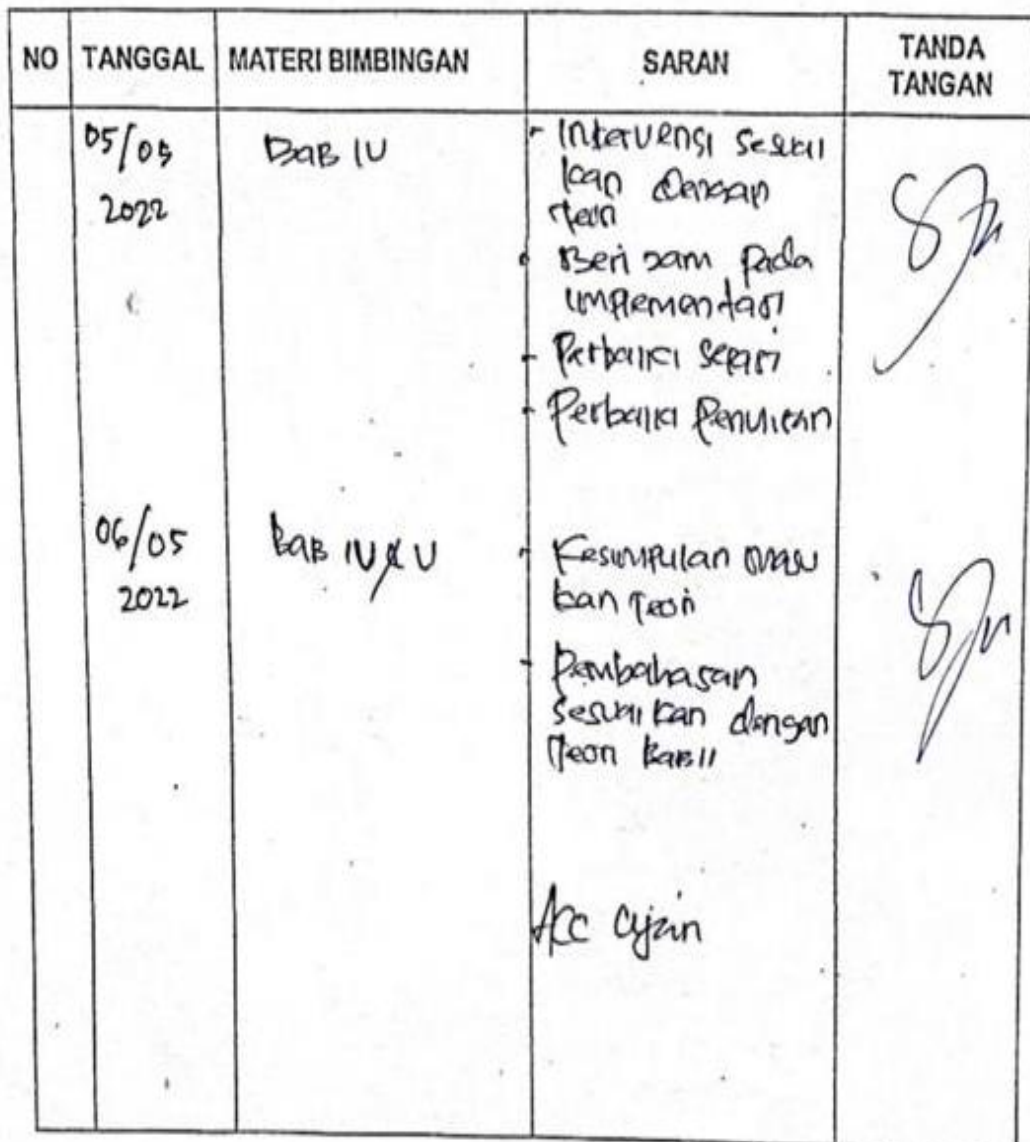 NO TANGGAL MATERI BIMBINGAN SARAN TANDA TANGAN
05/05 2022
Bab IV
- Intervensi sesuai
kan dengan
teori
- Beri jam pada
implementasi
- Perbaiki
- Perbaiki Penulisan
06/05 2022
Bab IV & V
- Kesimpulan
kan teori
- Pembahasan
sesuaikan dengan
teori Bab II
ACC Ujian